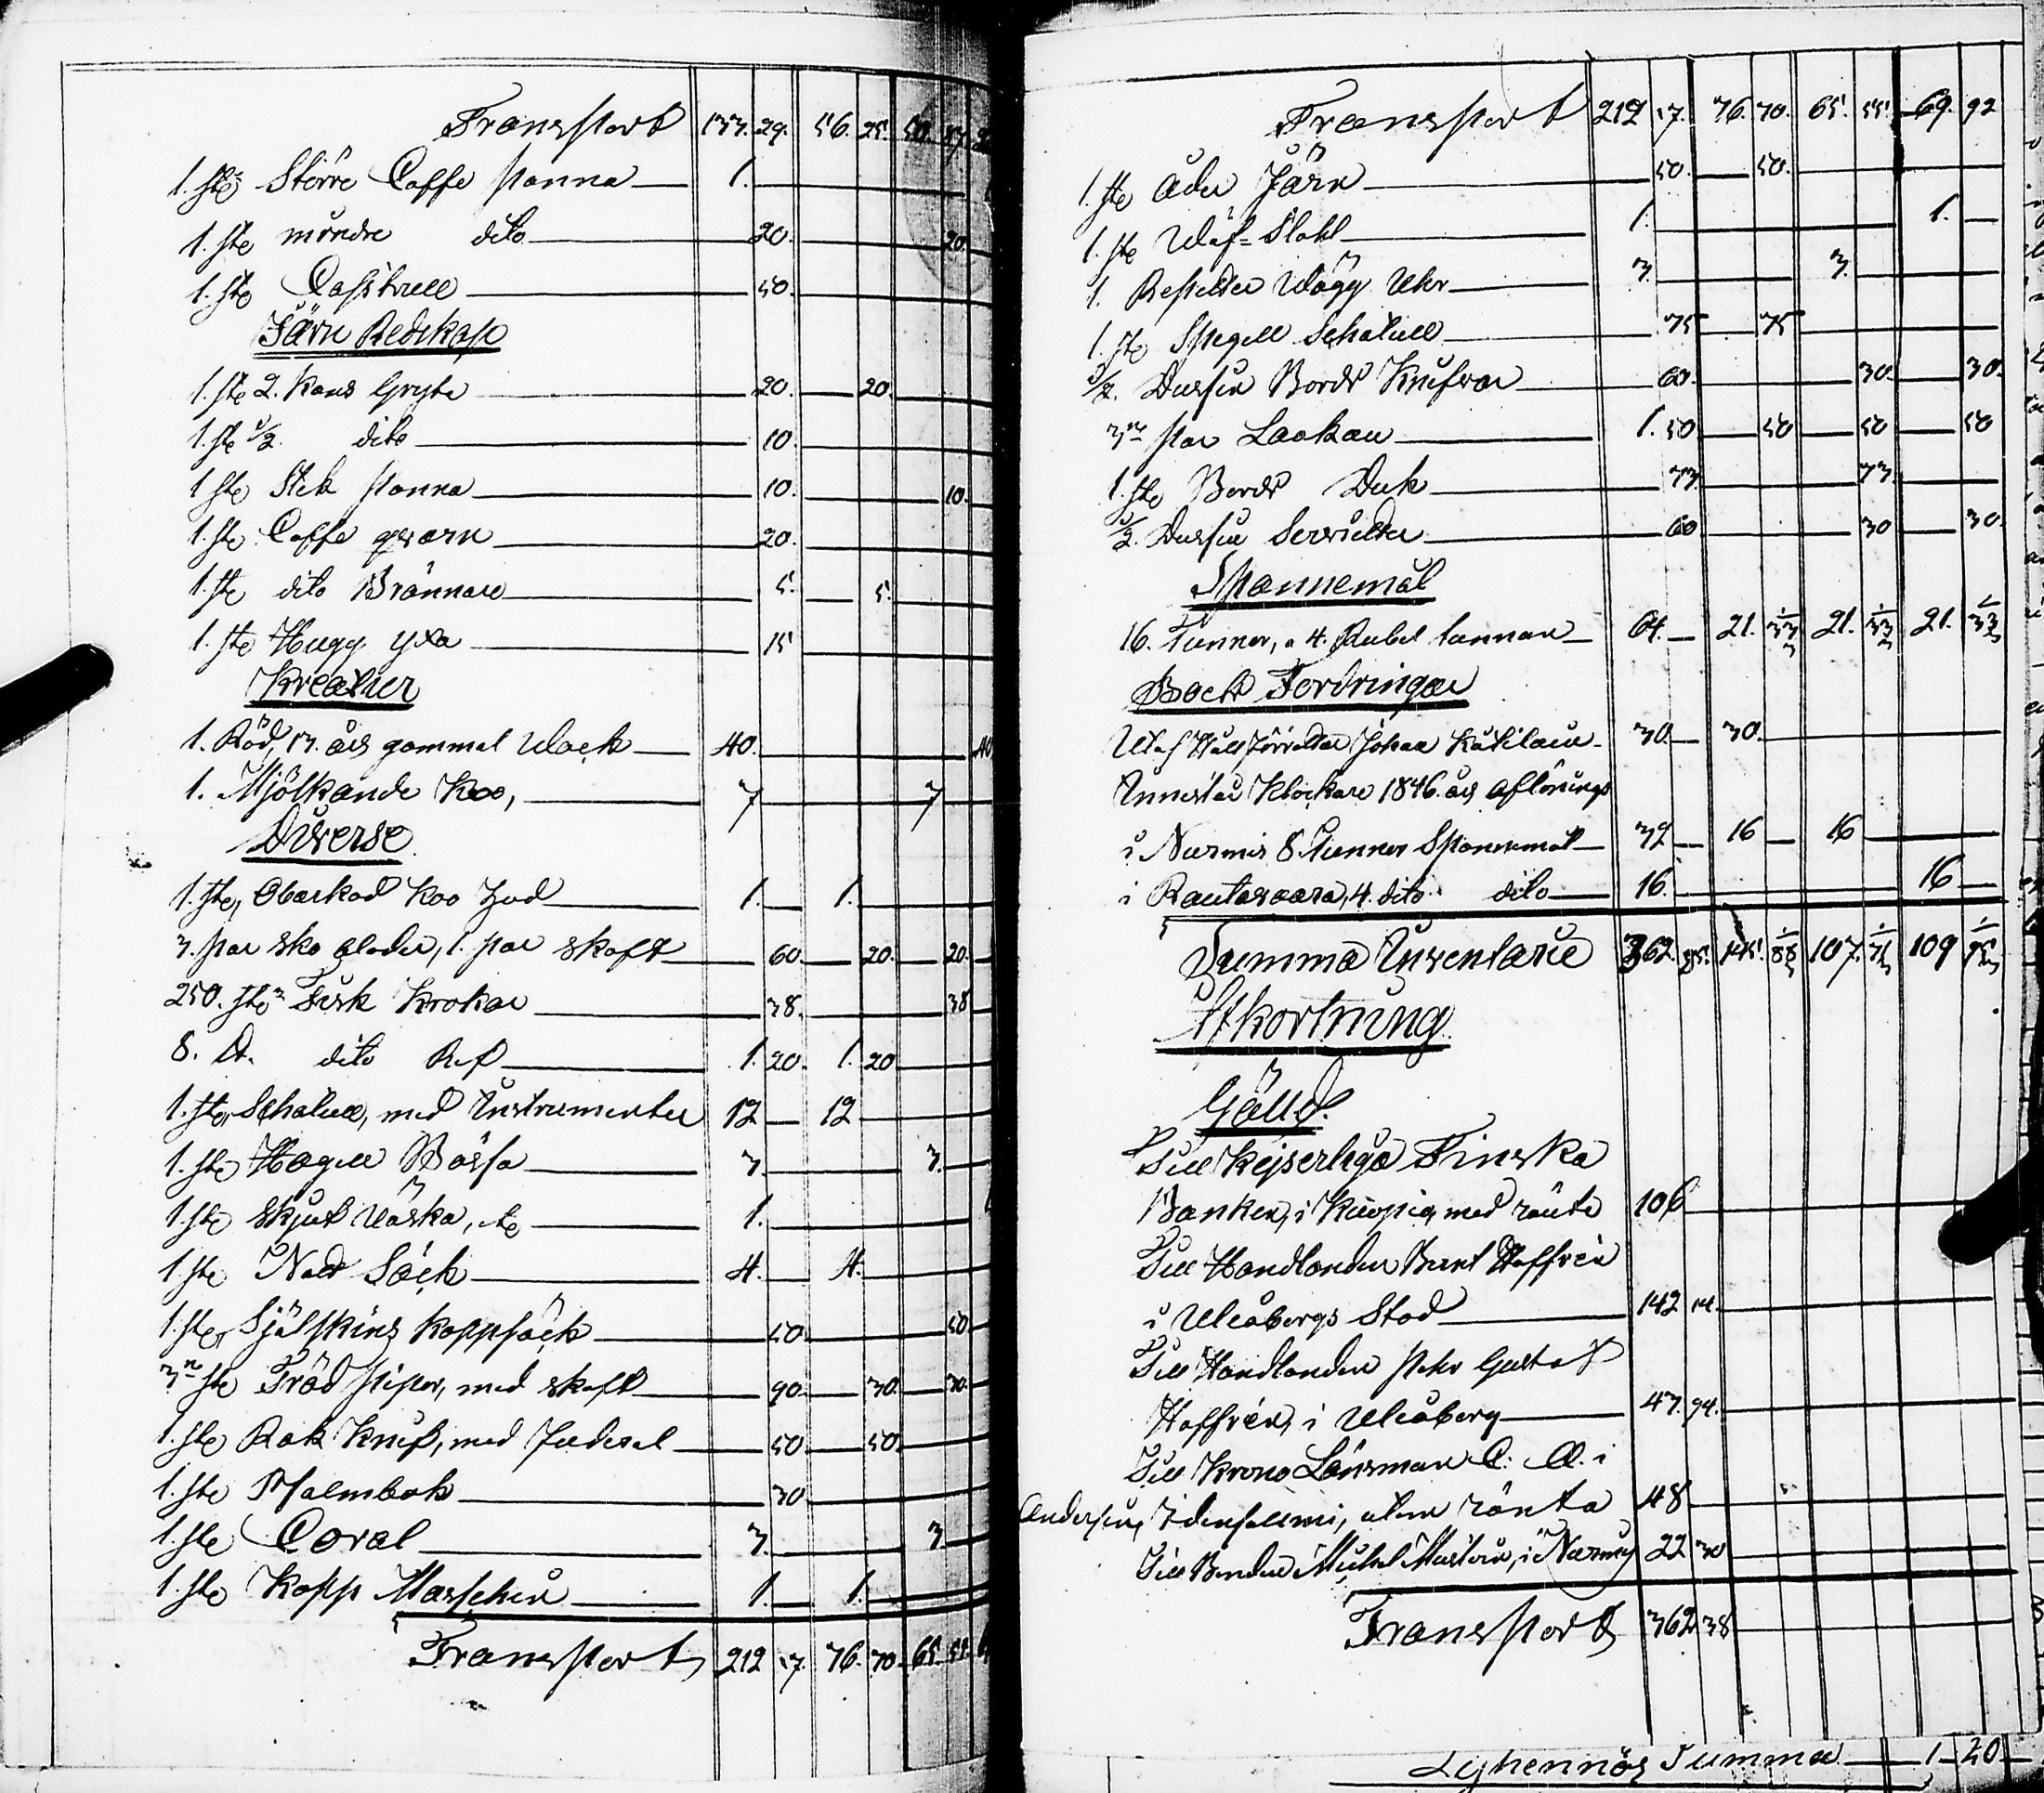 Transport 133. 29. 56. 25. 50. 87.
1. ste Större Caffe panna 1.
1. ste mindre dito 20. 20.
1. ste Casstrull 50.
Järn Redskap
1. ste 2. Kans Gryta 20. 20.
1. ste 1/2 dito 10.
1 ste Stek panna 10. 10.
1. ste Caffe qvarn 20.
1. ste dito Brännare 5. 5.
1. ste Hugg yxa 15
Kreatur
1. Röd, 13. års gammal Wack 40. 40
1. Mjölkande Koo, 7 7
Diverse
1. ste, Obarkad Koo hud 1. 1.
3. par sko blader, 1. par skaft 60. 20. 20.
250. ste Fisk Krokar 38. 38
8. dito Ref 1. 20. 1. 20
1. ste, Schatull, med Instrumenter 12 12
1. ste Hagell Bössa 3. 3.
1. ste Skjut Väska, etc 1.
1. ste Natt Säck 4. 4.
1. ste, Själskins Kappsäck 50. 50.
3n ste Träd pipor, med skaft 90. 30. 30.
1. ste Rak Knif, med Foderal 50. 50.
1. ste Psalmbok 30
1. ste Coral 3. 3.
1. ste Kopp Maschin 1. 1.
Transport 212 17. 76. 70. 65. 55.
Transport 212 17. 76. 70. 65. 55. 69. 92
1. ste Åder Järn 50. 50.
1. ste Wäf-Stohl 1. 1.
1. Wägg Uhr 3. 3.
1. ste Spegell Schatull 75 75
1/2. Dussin Bords Knifvar 60. 30. 30.
3n par Laakan 1. 50 50 50 50
1. ste Bords Duk 73. 73.
1/2. Dussin Servietter 60 30 30.
Spannemål
16. Tunnor, a 4. Rubel tunnan 64. 21. 33 1/3 21. 33 1/3 21. 33 1/3
Fordringar
Johan 30. 30.
Klockare 1846. års aflönings
i Nurmis 8. Tunnor Spannemål 32 16 16
i Rautavaara, 4. dito dito 16. 16
Summa Inventarie 362. 85. 145. 107. 109
Afkortning
Gälld.
Till Kejserliga Finska
Banken, i Kuopio, med ränta 106
Till Handlanden Hoffrén
i Uleåborgs Stad 142 14.
Till Handlanden Pehr Gustaf
Hoffrén, i Uleåborg 47. 94.
Till Krono Länsman C. A. i
Andersin, Idensallmi, utom ränta 48
Till Bonden Mikel i Nurmis 22 30
Transport 362 38
Lyhennös Summa 1 20